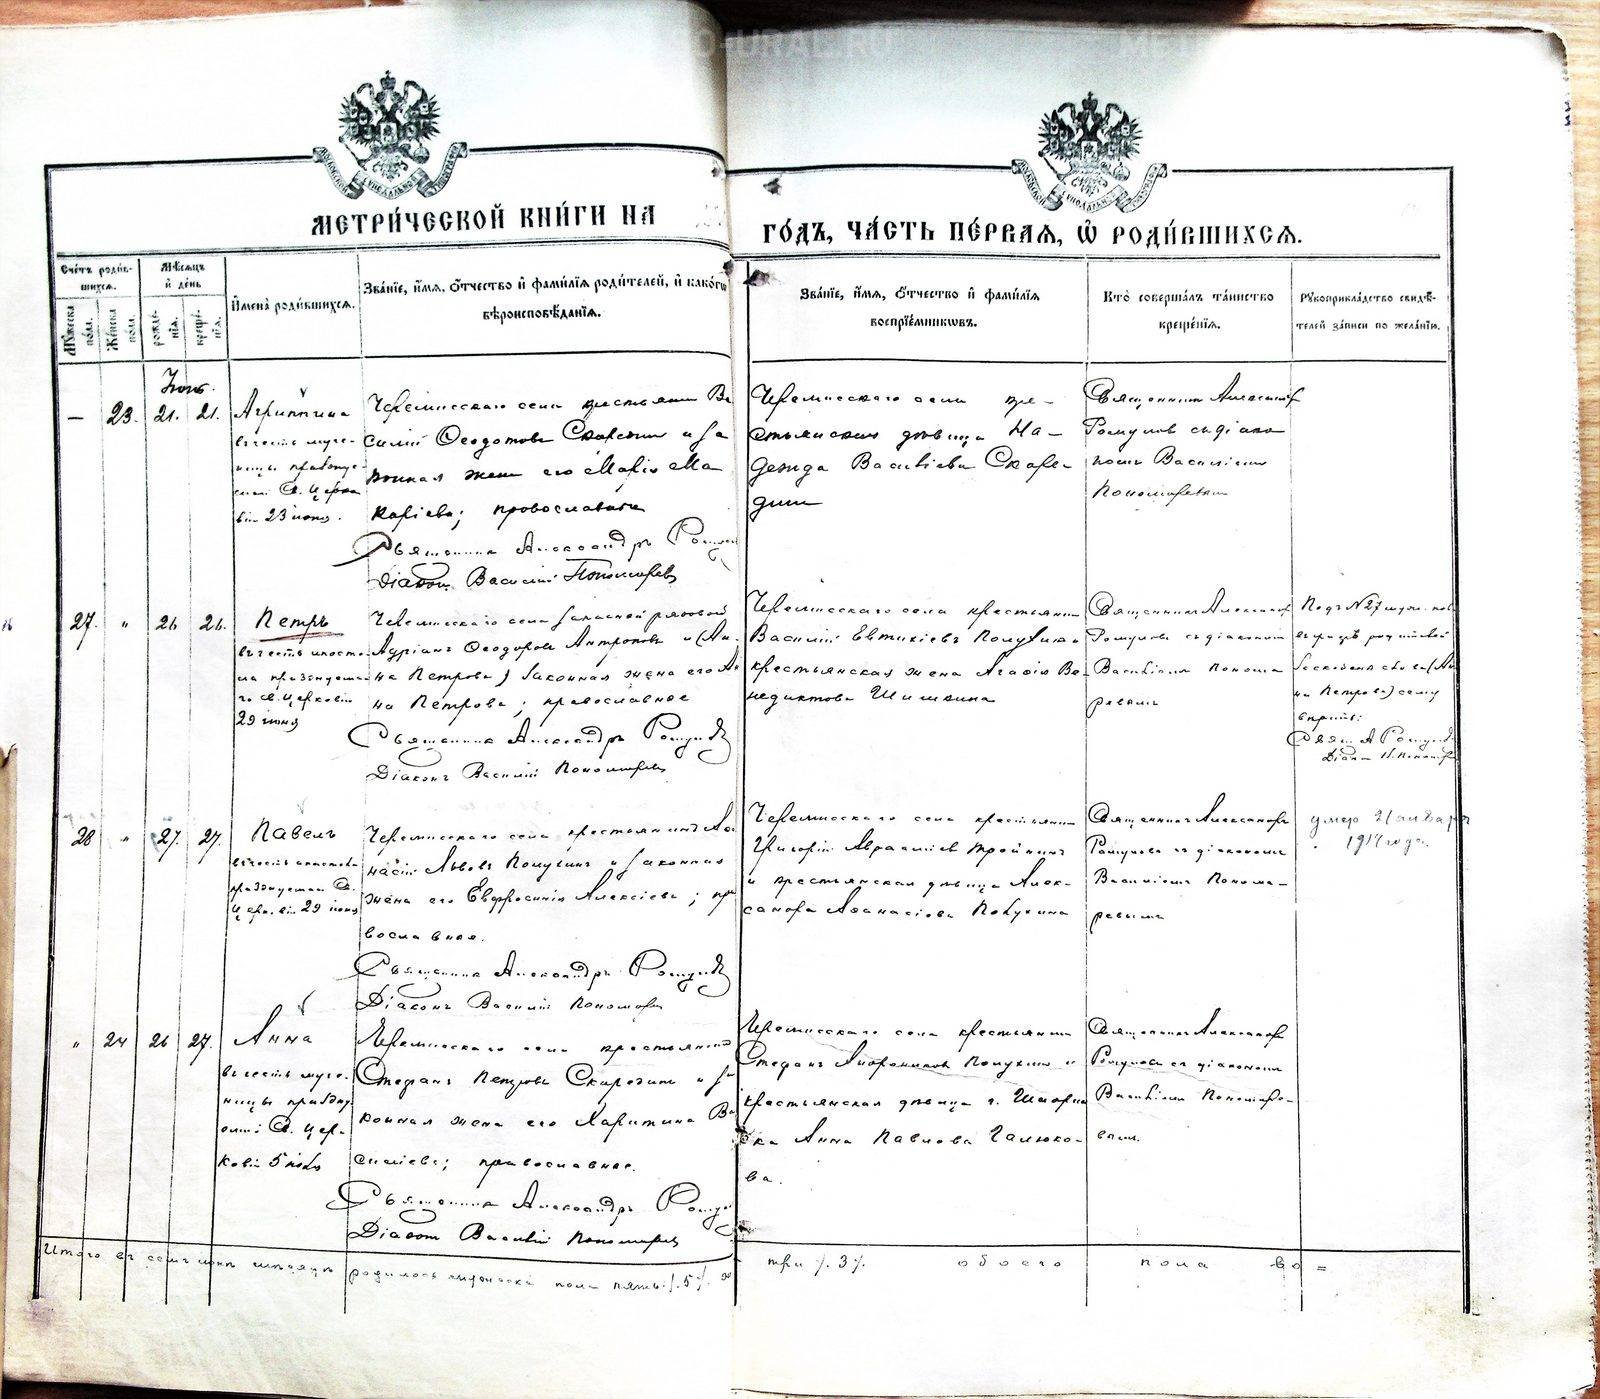 МЕТРИ́ЧЕСКОЙ КНИ́ГИ НА
ГО́ДЪ, ЧА́СТЬ ПЕ́РВАЯ, Ѡ҆ РОДИ́ВШИХСЯ.
Сче́тъ роди́в-
шихся.
Му́жеска по́ла.
Же́нска по́ла.
Мѣ́сяцъ
и҆ де́нь
рожде-
нїя.
креще́-
нїя.
И҆мена̀ роди́вшихся.
Зва́нїе, и҆́мя, ѻ҆́тчество и҆ фами́лїя роди́телей, и҆ како́гѡ
вѣроисповѣ́данїя.
Зва́нїе, и҆́мя, ѻ҆́тчество и҆ фами́лїя
воспрїе́мникѡвъ.
Кто̀ соверша́лъ та́инство
креще́нїя.
Рꙋкоприкла́дство свидѣ́-
телей за́писи по жела́нїю.
Іюнь.
— 23. 21. 21.
Агриппина
въ честь муче-
ницы празднуе-
мой Св. Церко
вію 23 іюня.
Черемисскаго села крестьянинъ Ва
силій Ѳеодотовъ Скоредин и за
конная жена его Марія Ма
каріева; православные
Священникъ Александръ
Діаконъ Василій Пономаревъ
Черемисскаго села кре-
стьянская дѣвица На-
дежда Василіева Скаре-
дина
Священникъ Александръ
Ромуловъ съ діако
номъ Василіемъ
Пономаревымъ
27. " 26 26.
Петръ
въ честь апосто-
ла празднуема-
го Св. Церковію
29 іюня
Черемисскаго села запасной рядовой
Адріанъ Ѳеодоровъ Антроповъ и (Ан-
на Петрова) законная жена его Ан
на Петрова; православные
Священникъ Александръ
Діаконъ Василій Пономаревъ
Черемисскаго села крестьянинъ
Василій Евтихіевъ
крестьянская жена Агафія Ве-
недиктова Шишкина
Священникъ Александръ
Ромуловъ съ діакономъ
Василіемъ Понома
ревымъ
Подъ №27 муж. пола
въ графѣ родителей
слова (Ан
на Петрова) сему
вѣрить:
Свящ. А.
Діакон В. Пономар
28 " 27. 27.
Павелъ
въ честь апостола
празднуемаго Св.
Церковію 29 іюня
Черемисскаго села крестьянинъ Аѳа
насій Львовъ и законная
жена его Евфросинія Алексіева; пра
вославные.
Священникъ Александръ
Діаконъ Василій Пономаревъ
Черемисскаго села крестьянинъ
Григорій Авраамовъ
и крестьянская дѣвица Алек-
сандра Аѳанасіева
Священникъ Александръ
Ромуловъ съ діакономъ
Василіемъ Понома-
ревымъ
умер 21 января
1917 года.
" 24 26 27.
Анна
въ честь муче-
ницы праздну
емой Св. Цер-
ковію 5 іюля
Черемисскаго села крестьянинъ
Стефанъ Петровъ Скорединъ и за
конная жена его Харитина Ва
силіева; православные.
Священникъ Александръ
Діаконъ Василій Пономаревъ
Черемисскаго села крестьянинъ
Стефанъ Андрониковъ и
крестьянская дѣвица
Анна Павлова Галюко-
ва.
Священникъ Александръ
Ромуловъ съ діакономъ
Василіемъ Пономаре-
вымъ.
Итого въ іюнѣ мѣсяцѣ родилось мужеска пола пять /.5./
три /.3./ обоего пола во =